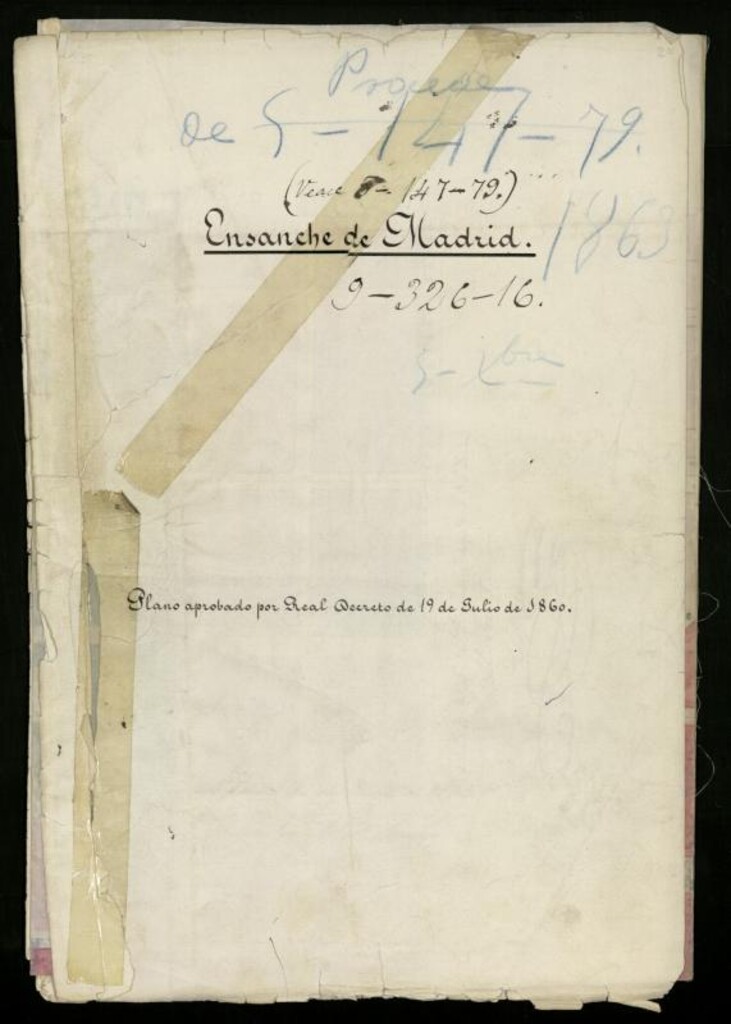 Procede
de 5-147-79.
(Vease 5-147-79.)
Ensanche de Madrid.
1863
9-326-16.
5-Xbre
Plano aprobado por Real Decreto de 19 de Julio de 1860.